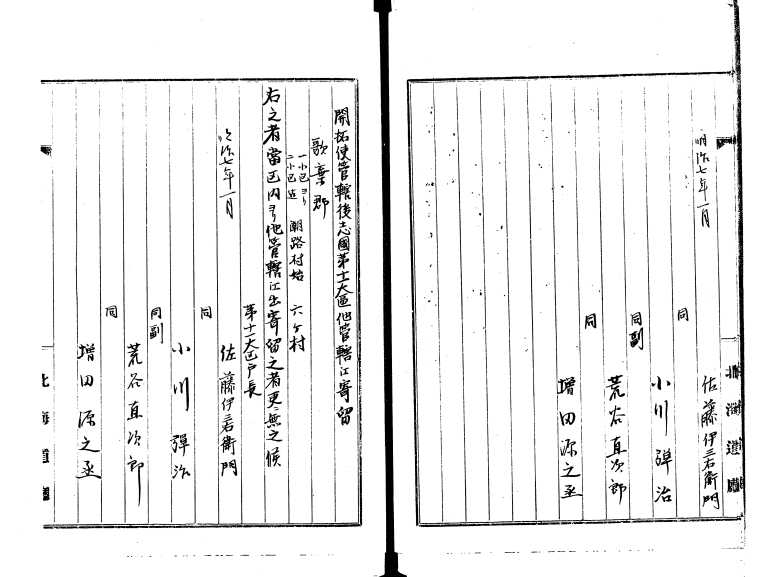 明治七年一月
佐藤伊三右衛門
同
小川弾治
同副
荒谷直次郎
同
増田源之丞
北海道廳
開拓使管轄後志國第十一大區他管轄江寄留
歌棄郡
一小区ヨリ
二小区迄
潮路村始
六ケ村
右之者當区内ヨリ他管轄江出寄留之者更ニ無之候
第十一大区戸長
明治七年一月
佐藤伊三右衛門
同
小川弾治
同副
荒谷直次郎
同
増田源之丞
北海道廳